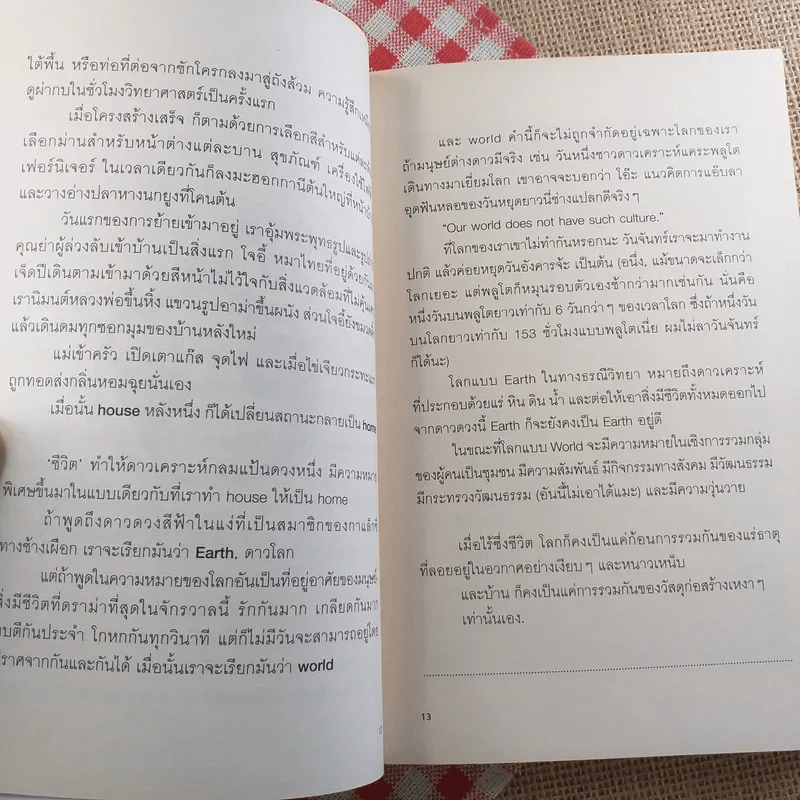 ใต้พื้น หรือท่อที่ต่อจากชักโครกลงมาสู่ถังส้วม ความรู้สึกเหมือน
ดูผ่ากบในชั่วโมงวิทยาศาสตร์เป็นครั้งแรก
เมื่อโครงสร้างเสร็จ ก็ตามด้วยการเลือกสีสำหรับแต่ละ
เลือกม่านสำหรับหน้าต่างแต่ละบาน สุขภัณฑ์ เครื่องใช้ไฟฟ้า
เฟอร์นิเจอร์ ในเวลาเดียวกันก็ลงมะฮอกกานีต้นใหญ่ที่หน้าบ้าน
และวางอ่างปลาหางนกยูงที่โคนต้น
วันแรกของการย้ายเข้ามาอยู่ เราอุ้มพระพุทธรูปและรูป
คุณย่าผู้ล่วงลับเข้าบ้านเป็นสิ่งแรก โจอี้ หมาไทยที่อยู่ด้วยกันมา
เจ็ดปีเดินตามเข้ามาด้วยสีหน้าไม่ไว้ใจกับสิ่งแวดล้อมที่ไม่คุ้นเคย
เรานิมนต์หลวงพ่อขึ้นหิ้ง แขวนรูปอาม่าขึ้นผนัง ส่วนโจอี้ยังขมวดคิ้ว
แล้วเดินดมทุกซอกมุมของบ้านหลังใหม่
แม่เข้าครัว เปิดเตาแก๊ส จุดไฟ และเมื่อไข่เจียวกระทะแรก
ถูกทอดส่งกลิ่นหอมฉุยนั่นเอง
เมื่อนั้น house หลังหนึ่ง ก็ได้เปลี่ยนสถานะกลายเป็น home
'ชีวิต' ทำให้ดาวเคราะห์กลมแป้นดวงหนึ่ง มีความหมาย
พิเศษขึ้นมาในแบบเดียวกับที่เราทำ house ให้เป็น home
ถ้าพูดถึงดาวดวงสีฟ้าในแง่ที่เป็นสมาชิกของกาแล็กซี
ทางช้างเผือก เราจะเรียกมันว่า Earth, ดาวโลก
แต่ถ้าพูดในความหมายของโลกอันเป็นที่อยู่อาศัยของมนุษย์
สิ่งมีชีวิตที่ดราม่าที่สุดในจักรวาลนี้ รักกันมาก เกลียดกันมาก
ตบตีกันประจำ โกหกกันทุกวินาที แต่ก็ไม่มีวันจะสามารถอยู่โดย
ปราศจากกันและกันได้ เมื่อนั้นเราจะเรียกมันว่า world
และ world คำนี้ก็จะไม่ถูกจำกัดอยู่เฉพาะโลกของเรา
ถ้ามนุษย์ต่างดาวมีจริง เช่น วันหนึ่งชาวดาวเคราะห์แคระพลูโต
เดินทางมาเยี่ยมโลก เขาอาจจะบอกว่า โอ๊ะ แนวคิดการแอ๊บลา
อุดฟันหลอของวันหยุดยาวนี่ช่างแปลกดีจริงๆ
"Our world does not have such culture."
ที่โลกของเราเขาไม่ทำกันหรอกนะ วันจันทร์เราจะมาทำงาน
ปกติ แล้วค่อยหยุดวันอังคารจ้ะ เป็นต้น (อนึ่ง, แม้ขนาดจะเล็กกว่า
โลกเยอะ แต่พลูโตก็หมุนรอบตัวเองช้ากว่ามากเช่นกัน นั่นคือ
หนึ่งวันบนพลูโตยาวเท่ากับ 6 วันกว่าๆ ของเวลาโลก ซึ่งถ้าหนึ่งวัน
บนโลกยาวเท่ากับ 153 ชั่วโมงแบบพลูโตเนี่ย ผมไม่ลาวันจันทร์
ก็ได้นะ)
โลกแบบ Earth ในทางธรณีวิทยา หมายถึงดาวเคราะห์
ที่ประกอบด้วยแร่ หิน ดิน น้ำ และต่อให้เอาสิ่งมีชีวิตทั้งหมดออกไป
จากดาวดวงนี้ Earth ก็จะยังคงเป็น Earth อยู่ดี
ในขณะที่โลกแบบ World จะมีความหมายในเชิงการรวมกลุ่ม
ของผู้คนเป็นชุมชน มีความสัมพันธ์ มีกิจกรรมทางสังคม มีวัฒนธรรม
มีกระทรวงวัฒนธรรม (อันนี้ไม่เอาได้แมะ) และมีความวุ่นวาย
เมื่อไร้ซึ่งชีวิต โลกก็คงเป็นแค่ก้อนการรวมกันของแร่ธาตุ
ที่ลอยอยู่ในอวกาศอย่างเงียบๆ และหนาวเหน็บ
และบ้าน ก็คงเป็นแค่การรวมกันของวัสดุก่อสร้างเหงาๆ
เท่านั้นเอง.
13